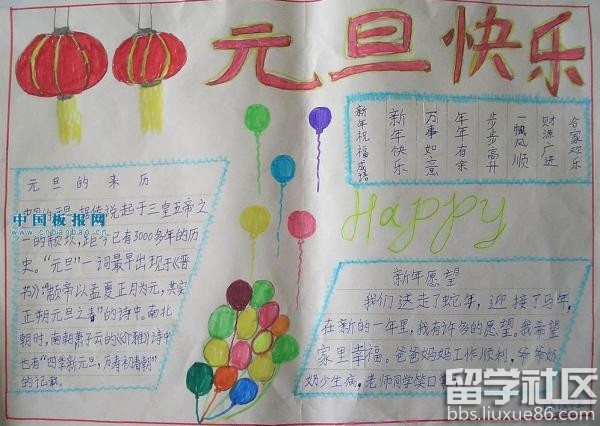 元旦快乐
新年祝福成语
新年快乐
万事如意
年年有余
步步高升
一帆风顺
财源广进
合家欢乐
元旦的来历
据传说起于三皇五帝之
中国板报网
www.cnbanbao.cn
一的颛顼,距今已有3000多年的历
史。“元旦”一词最早出现于《晋
书》:“颛帝以孟夏正月为元,其实
正朔元旦之春”的诗中。南北
朝时,南朝萧子云的《介雅》诗中
也有“四季新元旦,万寿初朝”
的记载。
Happy
新年愿望
我们送走了蛇年,迎接了马年,
在新的一年里,我有许多的愿望。我希望
家里幸福。爸爸妈妈工作顺利,爷爷奶
奶少生病,老师同学笑口
留学社区
bbs.liuxue86.com